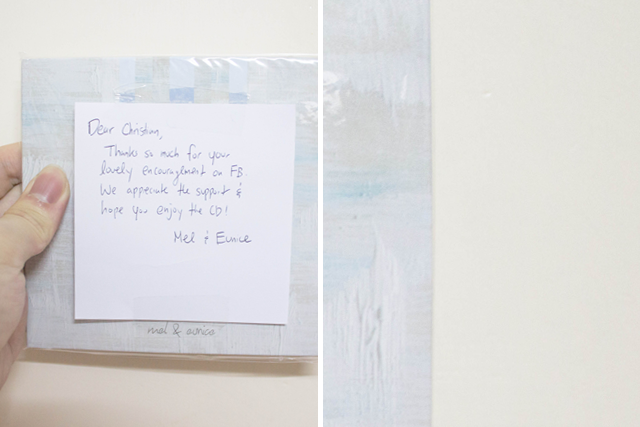 Dear Christian,
Thanks so much for your
lovely encouragment on FB.
We appreciate the support &
hope you enjoy the CD!
Mel & Eunice
mel & eunice